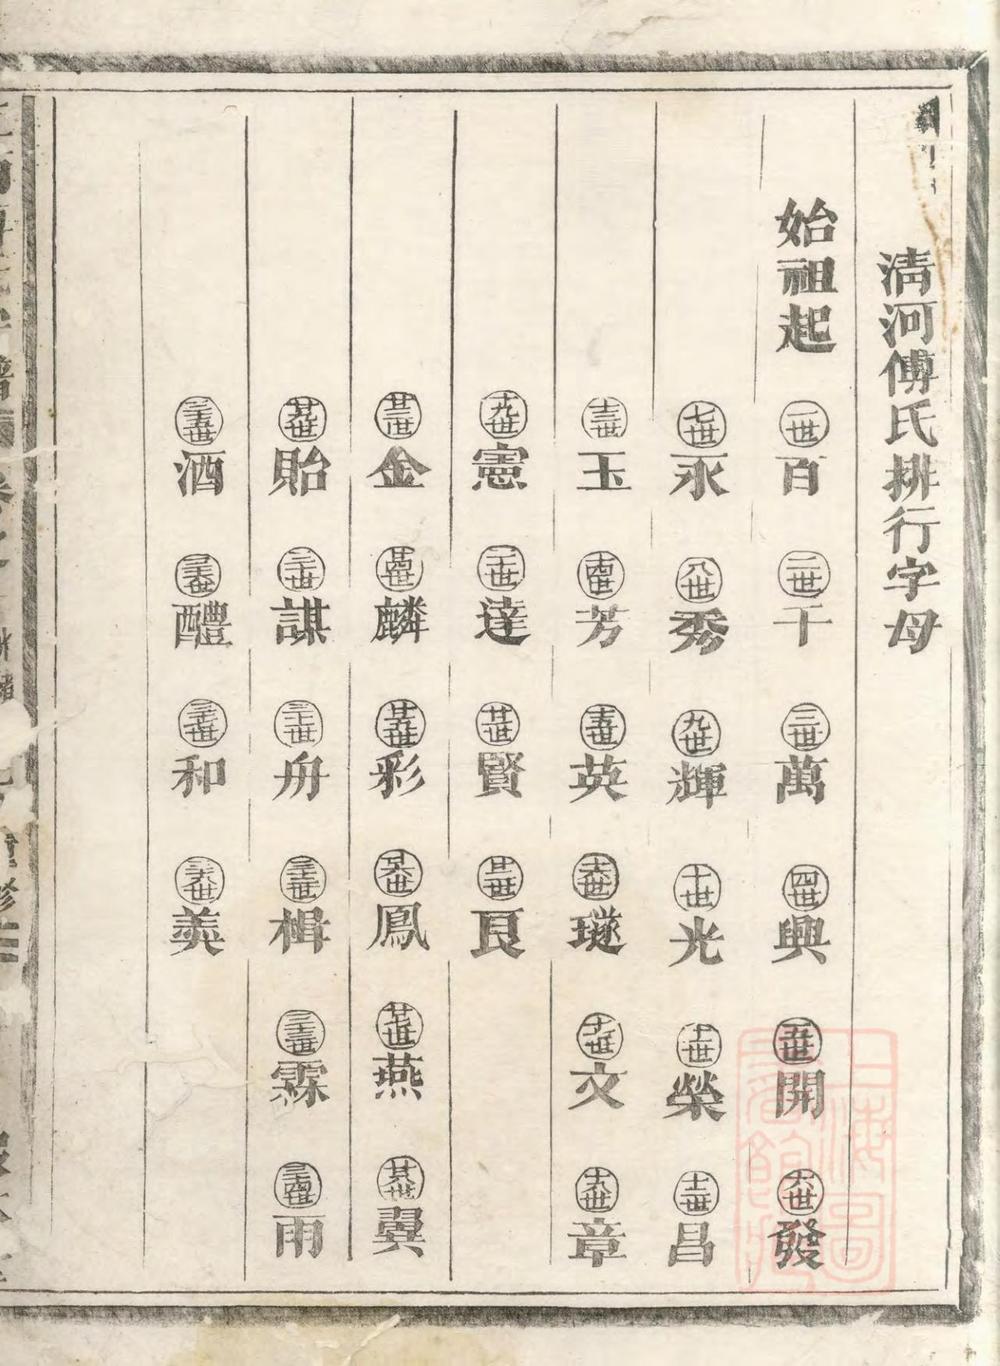 清河傅氏排行字母
始祖起 一世 百 二世 千 三世 萬 四世 興 五世 開 六世 發
七世 永 八世 秀 九世 輝 十世 光 十一世 榮 十二世 昌
十三世 玉 十四世 芳 十五世 英 十六世 璲 十七世 文 十八世 章
十九世 憲 二十世 達 廿一世 賢 廿二世 良
廿三世 金 廿四世 麟 廿五世 彩 廿六世 鳳 廿七世 燕 廿八世 翼
廿九世 貽 三十世 謀 三十一世 舟 三十二世 楫 三十三世 霖 三十四世 雨
三十五世 酒 三十六世 醴 三十七世 和 三十八世 羹
上海圖
書館藏